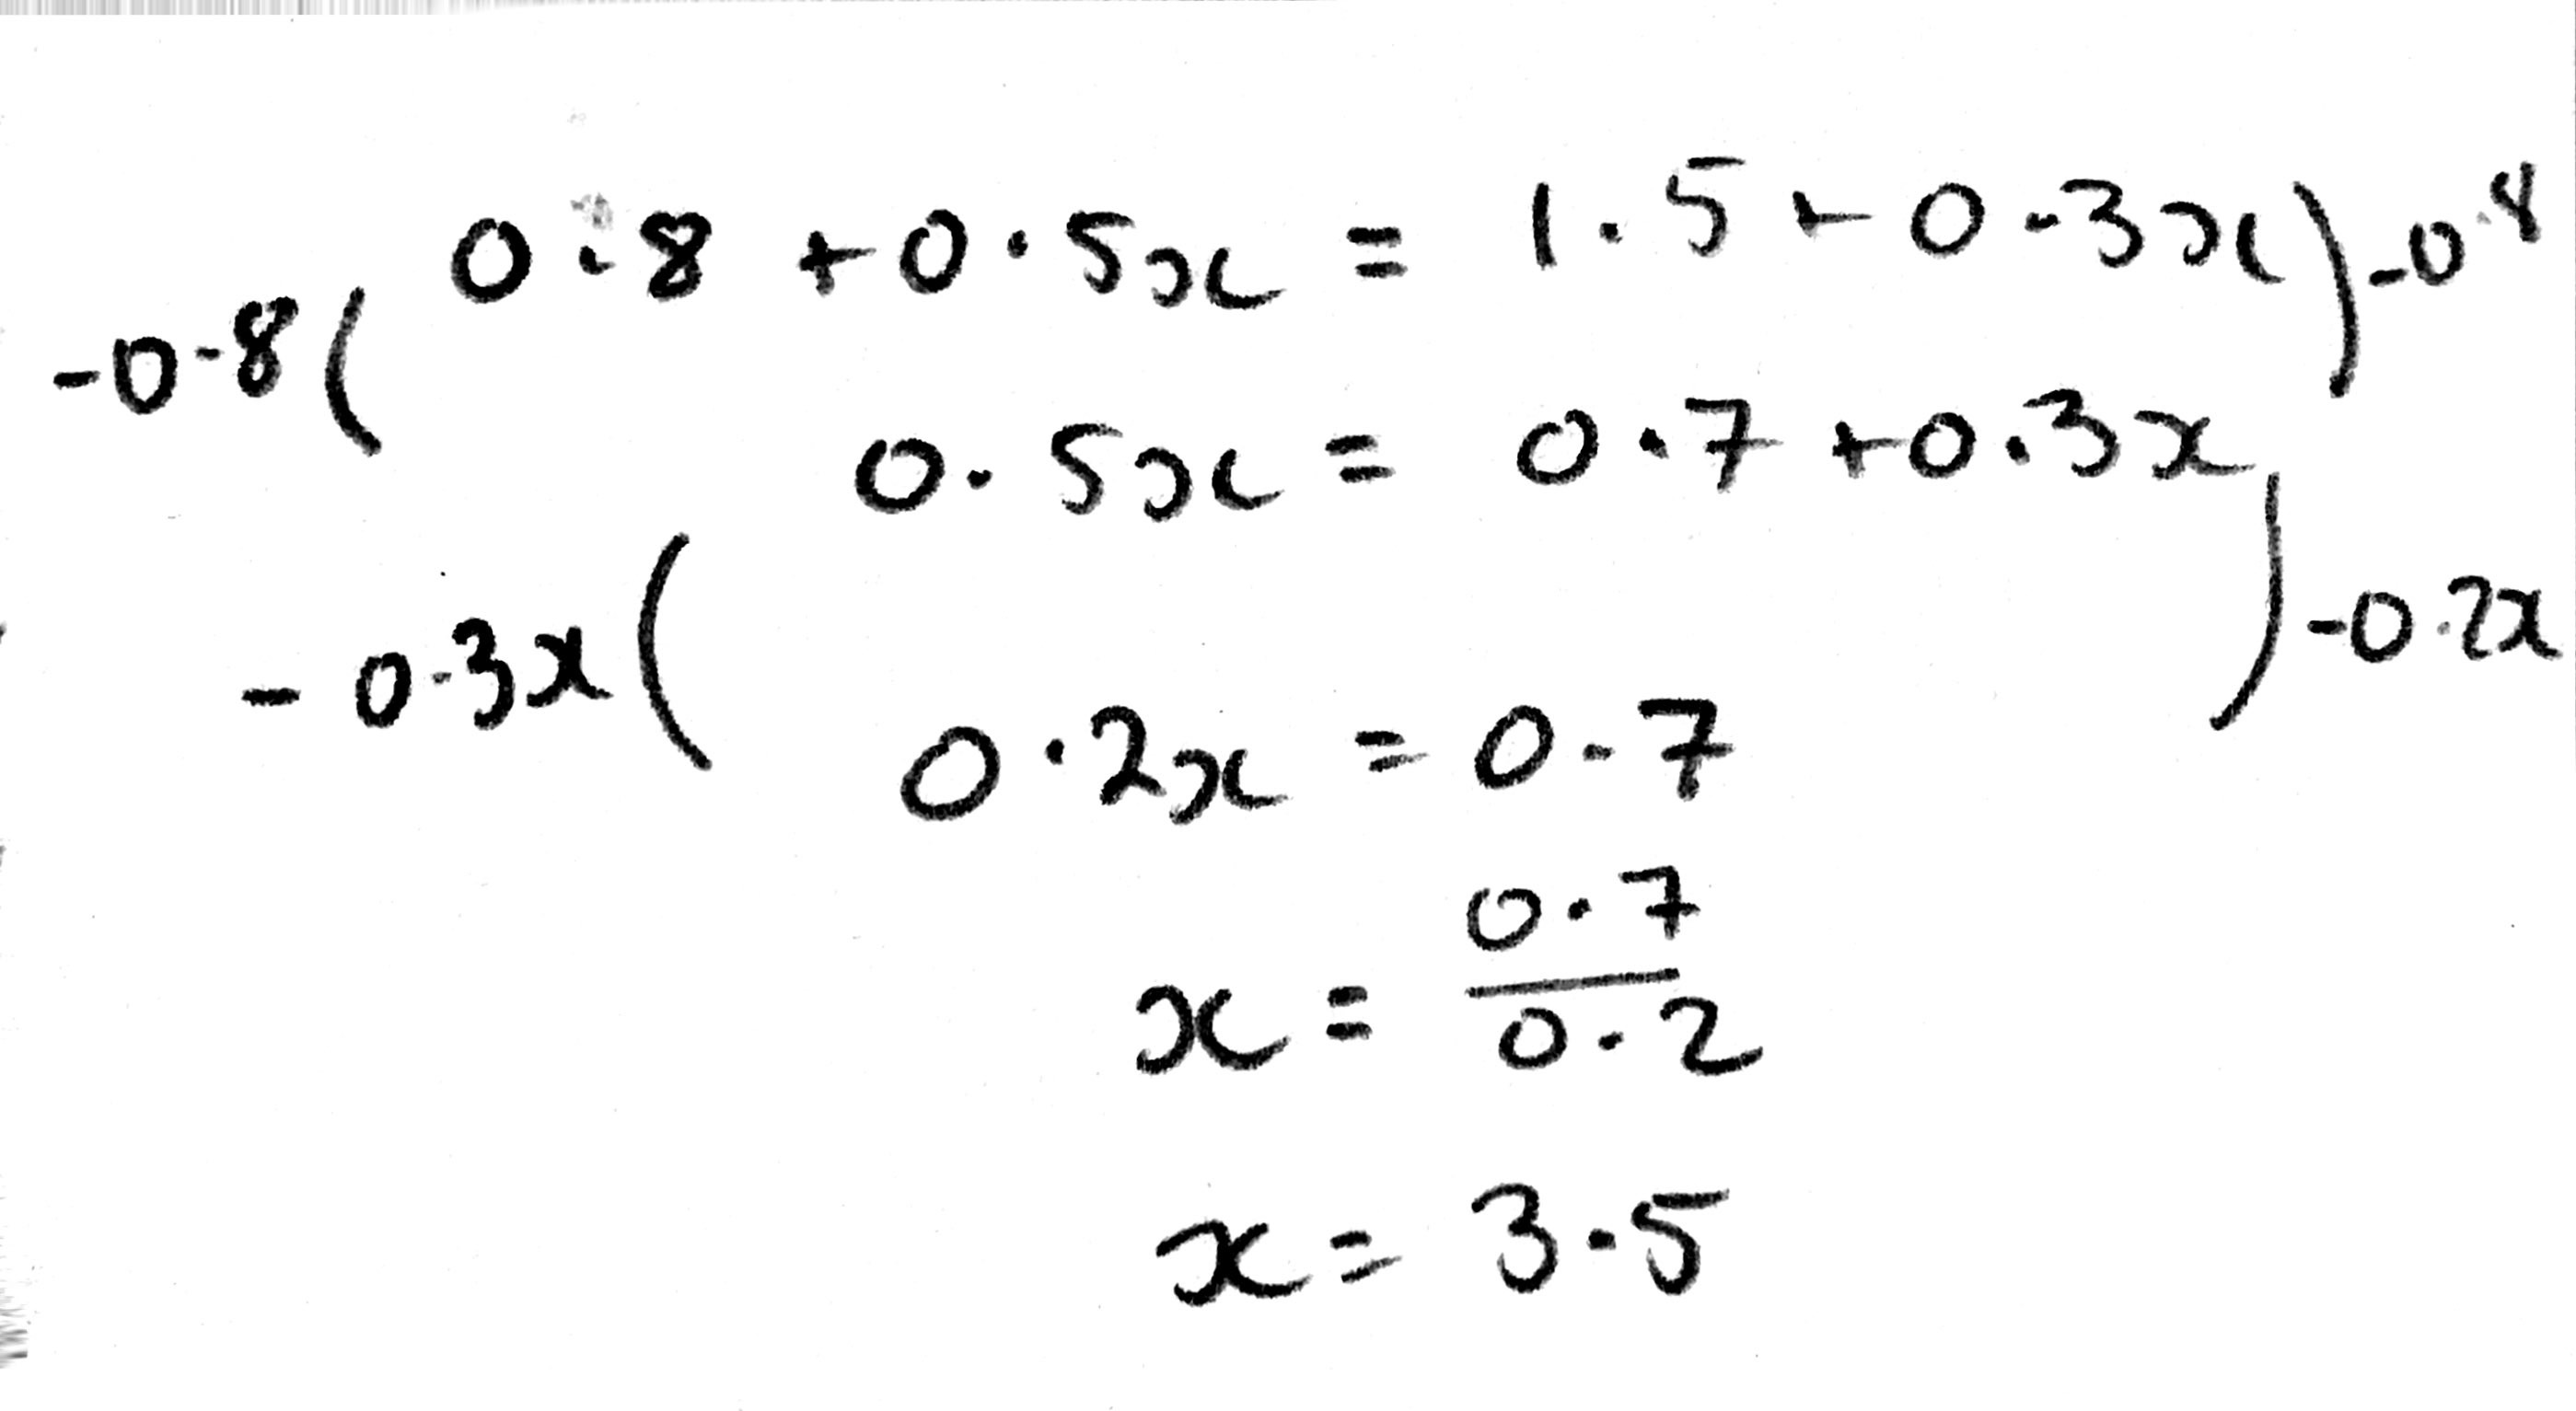 0.8 + 0.5x = 1.5 + 0.3x ) -0.8
-0.8 (
0.5x = 0.7 + 0.3x
- 0.3x ( ) -0.2x
0.2x = 0.7
x = 0.7/0.2
x = 3.5